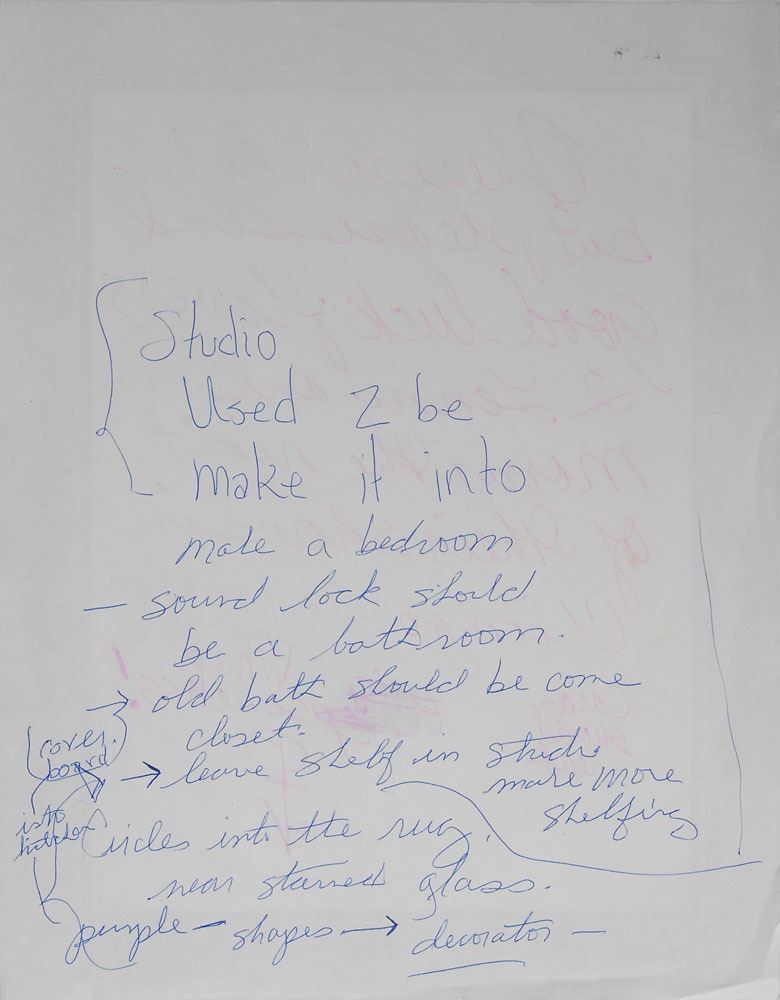 Studio
Used 2 be
make it into
make a bedroom
— sound lock should
be a bathroom.
→ old bath should be come
closet.
(cover.
board)
→ leave shelf in studio
make more
shelfing
into
kitchen
Circles into the rug.
near stained glass.
purple — shapes → decorator —
but please send
good luck